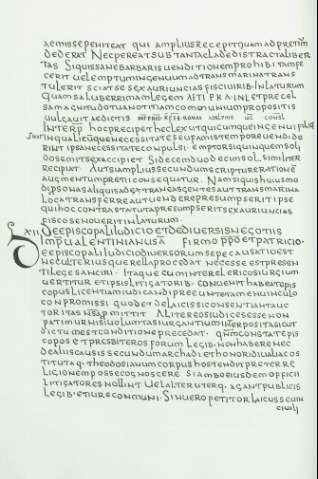 AEMISSE PENITEAT QUI AMPLIUS RECEPIT QUAM AD PRETIUM
DEDERAT NEC PEREAT SUB TANTA CLADE DISTRACTA LIBER
TAS SI QUIS SANE BARBARIS UENDITIONEM PROHIBITAM FE
CERIT UEL EMPTUM INGENUUM AD TRANSMARINA TRANS
TULERIT SCIAT SE SEX AURI UNCIAS FISCI UIRIB INLATURUM
QUAM SALUBERRIMAM LEGEM
SA MAGNITUDO TUA NOTITIAM COMMUNIUM PROPOSITIS
UULGAUIT AEDICTIS
INTERP HOC PRECIPIT HEC LEX UT QUICUMQUE INGENUI FILIOS
SUOS IN QUALIBET NECESSITATE SEU FAMIS TEMPORE UENDIDE
RINT IPSA NECESSITATE CONPULSI EMPTOR SI QUINQUE SOLI
DOS EMIT SEX ACCIPIET SI DECEM UNDECIM SOL SIMILITER
RECIPIAT AUT SI AMPLIUS SECUNDUM SCRIPTURE RATIONE
AUGMENTUM PRETII CONSEQUATUR NAM SI QUIS HUIUSMO
DI PERSONAS ALIQUAS AD EXTRANEAS GENTES AUT TRANSMARINA
LOCA TRANSFERRE AUT UENDERE PRESUMPSERIT IPSE
QUI HOC CONTRA STATUTA PRESUMPSERIT SEX AURI UNCIAS
FISCO SE NOUERIT INLATURUM
XII DE EPISCOPALI IUDICIO ET DE DIUERSIS NEGOTIIS
IMP UALENTINIANUS A FIRMO PPO ET PATRICIO
DE EPISCOPALI IUDICIO DIUERSORUM SEPE CAUSATIO EST
NE ULTERIUS QUERELLA PROCEDAT NECESSE EST PRESEN
TI LEGE SANCIRI ITAQUE CUM INTER CLERICOS IURGIUM
UERTITUR ET IPSIS LITIGATORIB CONUENIT HABEAT EPIS
COPUS LICENTIAM IUDICANDI PREEUNTE TAMEN UINCULO
CONPROMISSI QUOD ET DE LAICIS SI CONSENTIANT AUC
TORITAS NSA PERMITTIT ALITER EOS IUDICES ESSE NON
PATIMUR NISI UOLUNTAS IURGANTIUM INTERPOSITA SICUT
DICTUM EST CONDITIONE PRECEDAT QUM CONSTAT EPIS
COPOS ET PRESBITEROS FORUM LEGIB NON HABERE NEC
DE ALIIS CAUSIS SECUNDUM ARCHADI ET HONORII DIUALIA CONS
TITUTA Q THEODOSIANUM CORPUS HOSTENDIT PRETER RE
LIGIONEM POSSE COGNOSCERE SI AMBO EIUSDEM OFFICII
LITIGATORES NOLLINT UEL ALTERUTER Q AGANT PUBLICIS
LEGIB ET IURE COMMUNI SIN UERO PETITOR LAICUS SEU IN
CIUILI